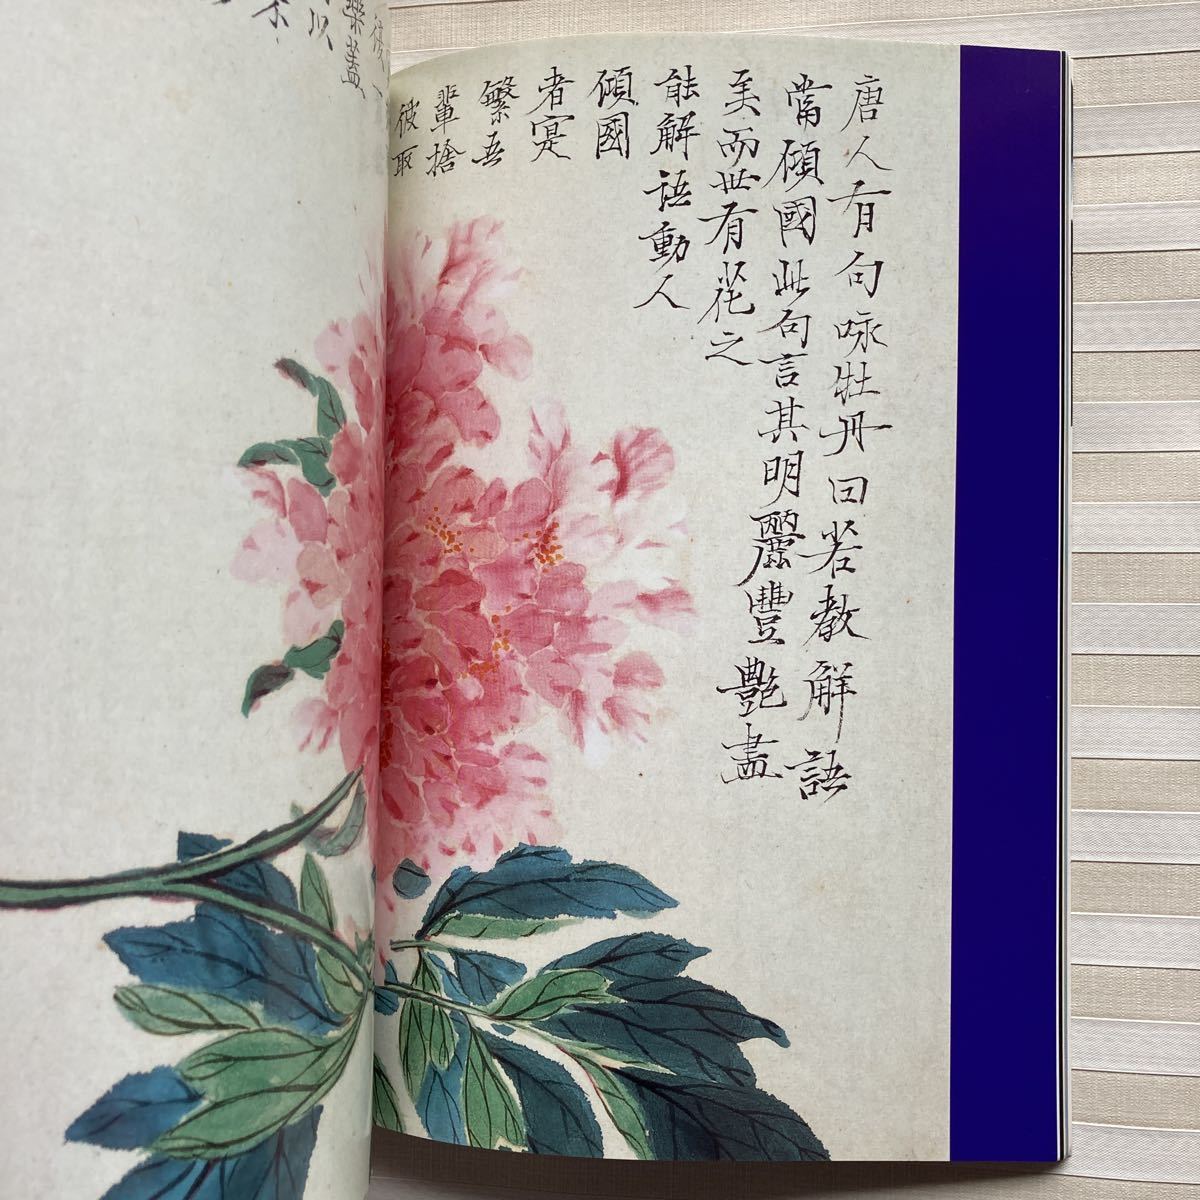 唐人有句咏牡丹曰若教解語
當傾國此句言其明麗豐艷盡
美而世有花之
能解語動人
傾國
者寔
繁吾
輩捨
彼取
後一
樂蓋
以